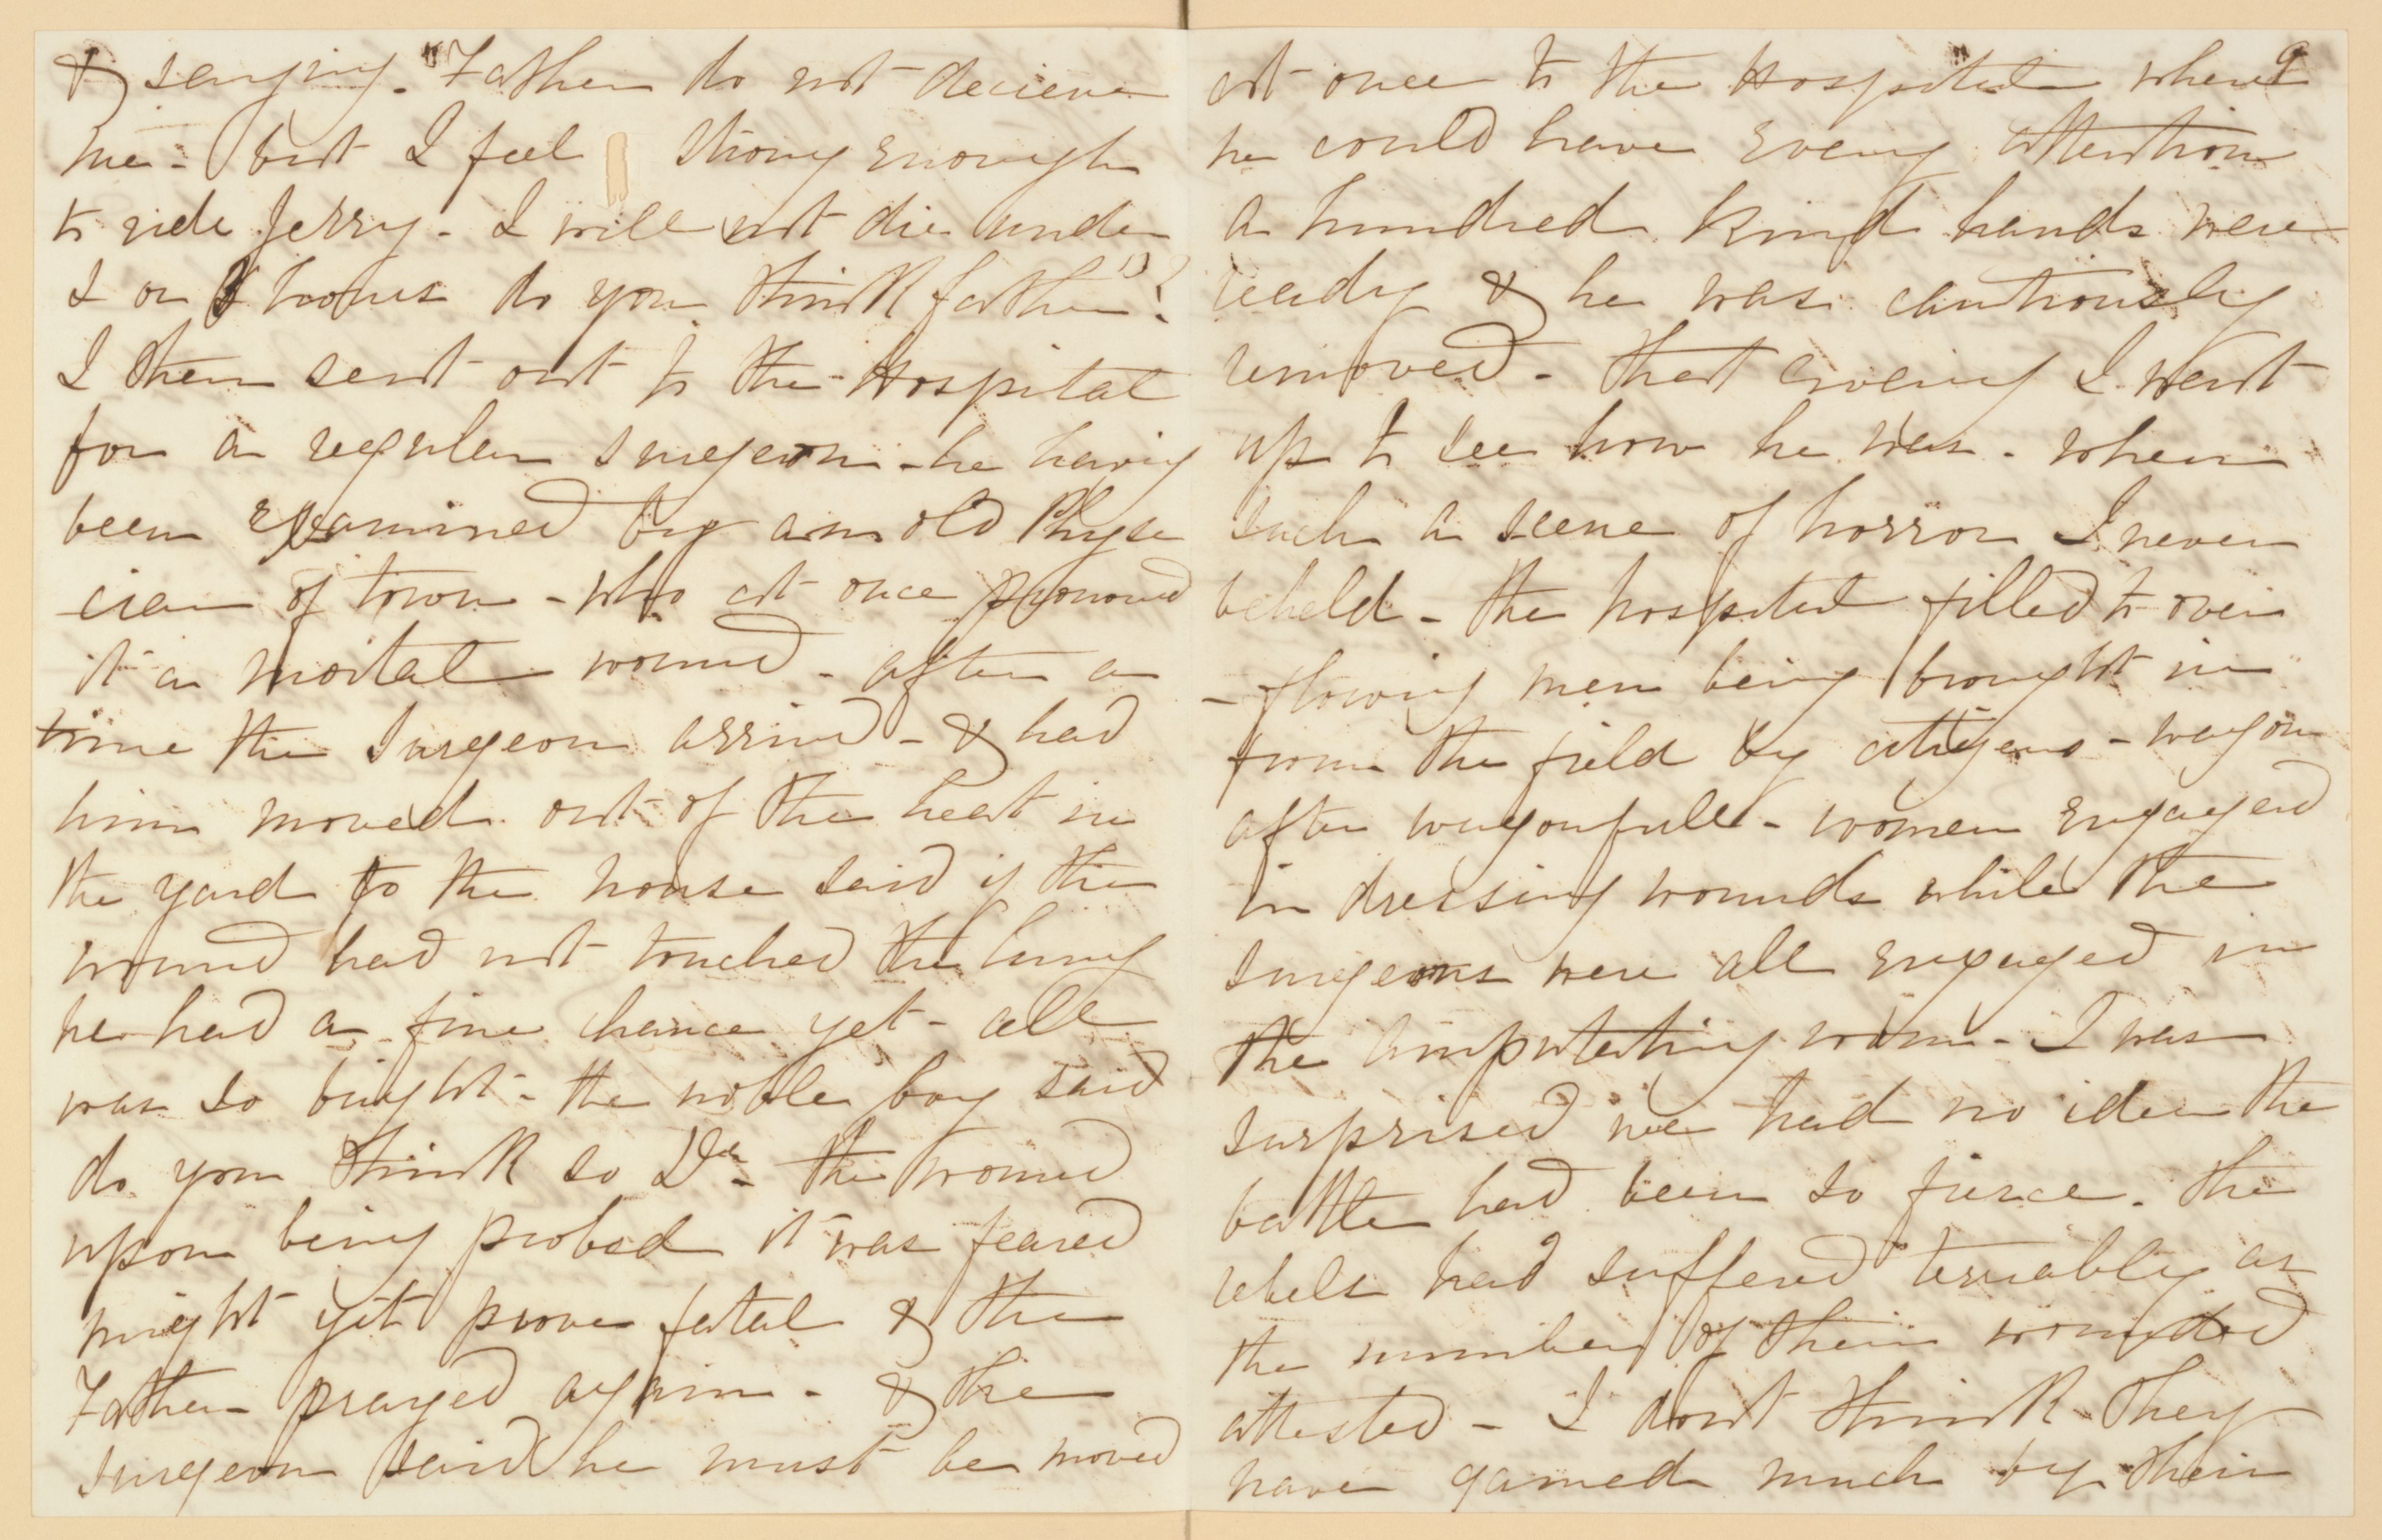 & saying. "Father do not decieve
me - but I feel strong enough
to ride Jerry. I will not die under
2 or 3 hours do you think father"?
I then sent out to the Hospital
for a regular surgeon - he having
been examined by an old Physi
-cian of town - who at once pronounced
it a mortal wound - after a
time the Surgeon arrived - & had
him moved out of the heat in
the yard to the house said if the
wound had not touched the lung
he had a fine chance yet - all
was so bright - the noble boy said
do you think so Dr - the wound
upon being probed it was feared
might yet prove fatal & the
Father prayed again - & the
surgeon said he must be moved
9
at once to the Hospital where
he could have every attention
a hundred kind hands were
ready & he was cautiously
removed - that evening I went
up to see how he was - when
such a scene of horror I never
beheld - the hospital filled to over
-flowing men being brought in
from the field by citizens - wagon
after wagonfull - women engaged
in dressing wounds while the
surgeons were all engaged in
the amputating room - I was
surprised we had no idea the
battle had been so fierce. the
rebels had suffered terriably as
the number of their wounded
attested - I dont think they
have gained much by their